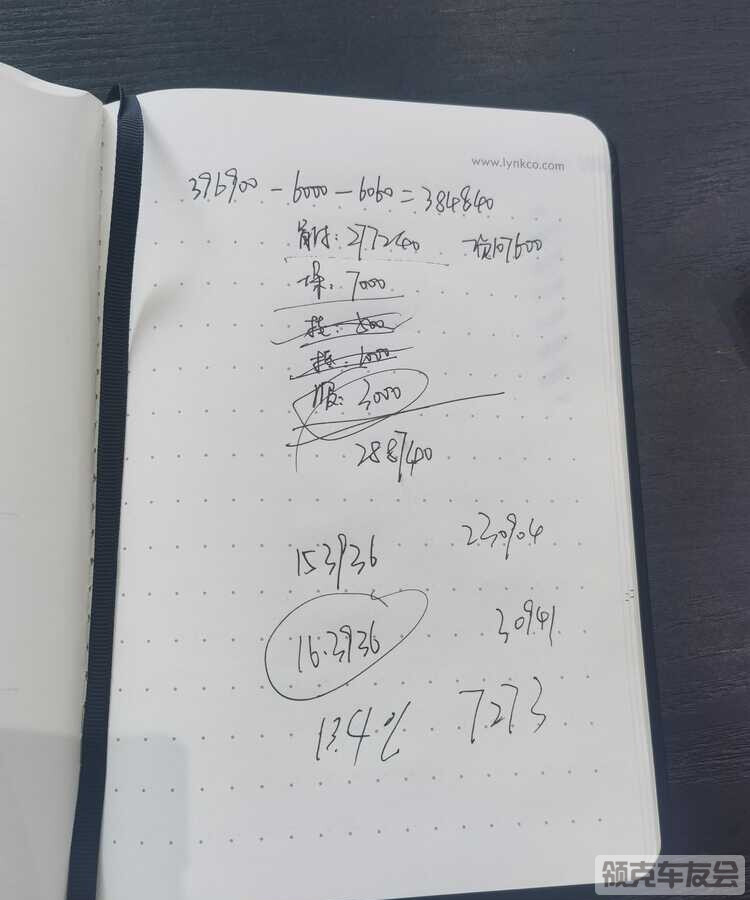 www.lynkco.com
396900 - 6000 - 6060 = 384840
首付: 277240 贷107600
保: 7000
500
1000
服: 3000
288740
153936 230904
163936 30941
13.4% 7273
领克车友会